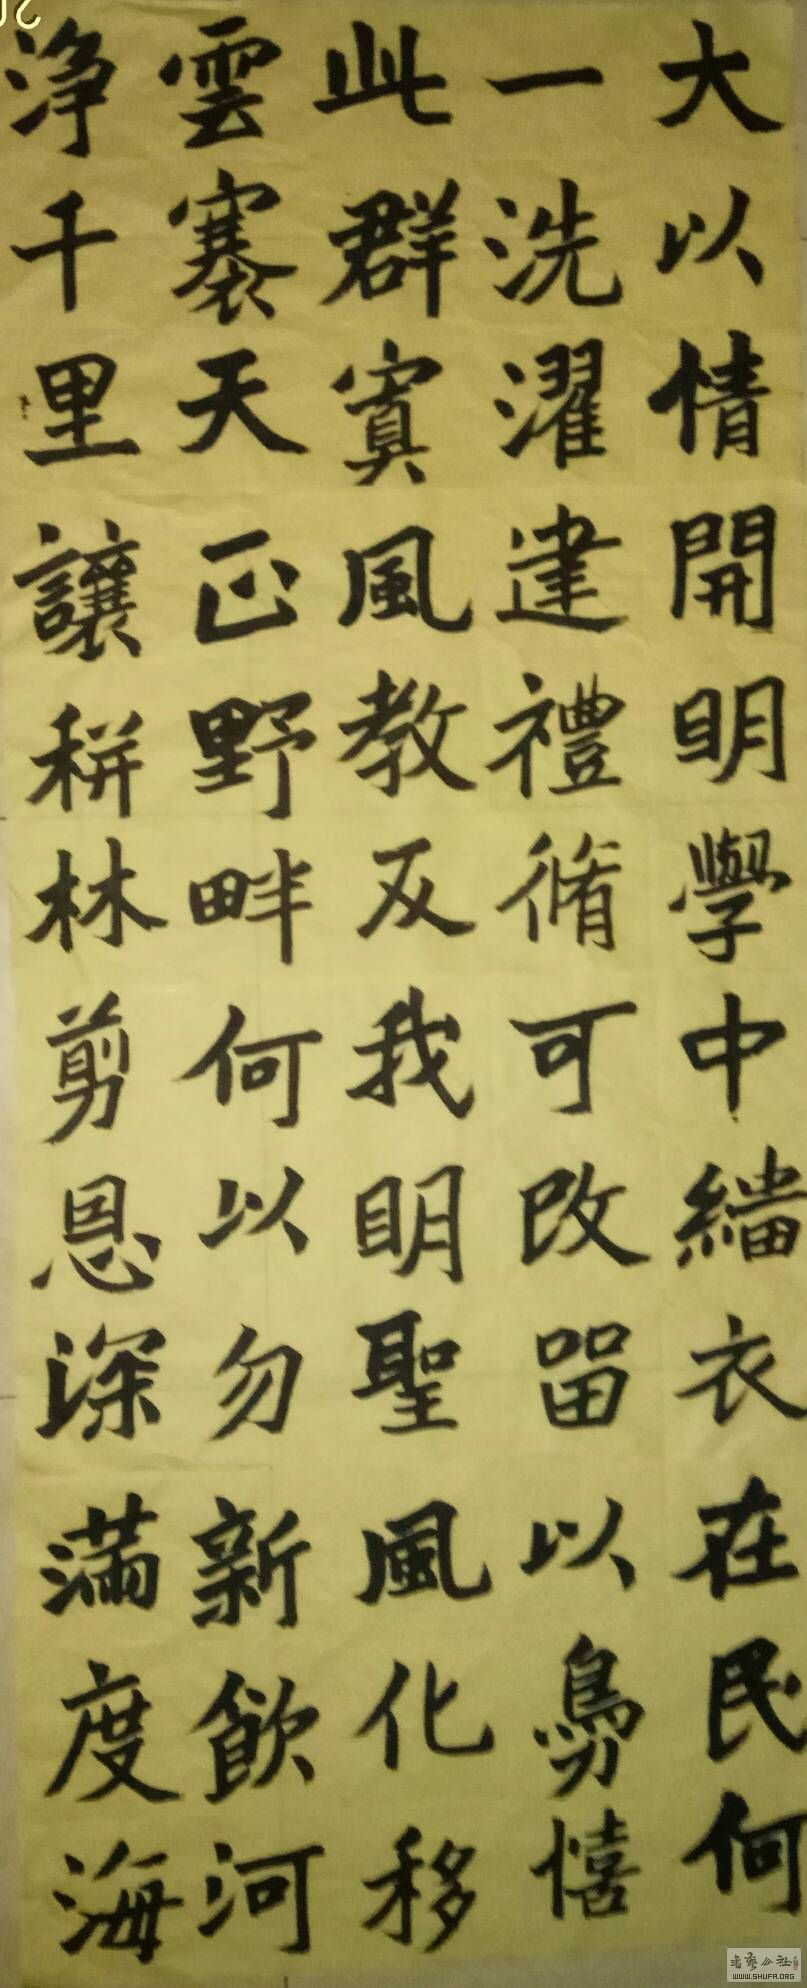 大以情開明學中緇衣在民何
一洗濯建禮脩可改留以舄憘
此群寘風教反我明聖風化移
雲褰天正野畔何以勿新飲河
浄千里讓耕林剪恩深滿度海
书艺公社
WWW.SHUFA.ORG